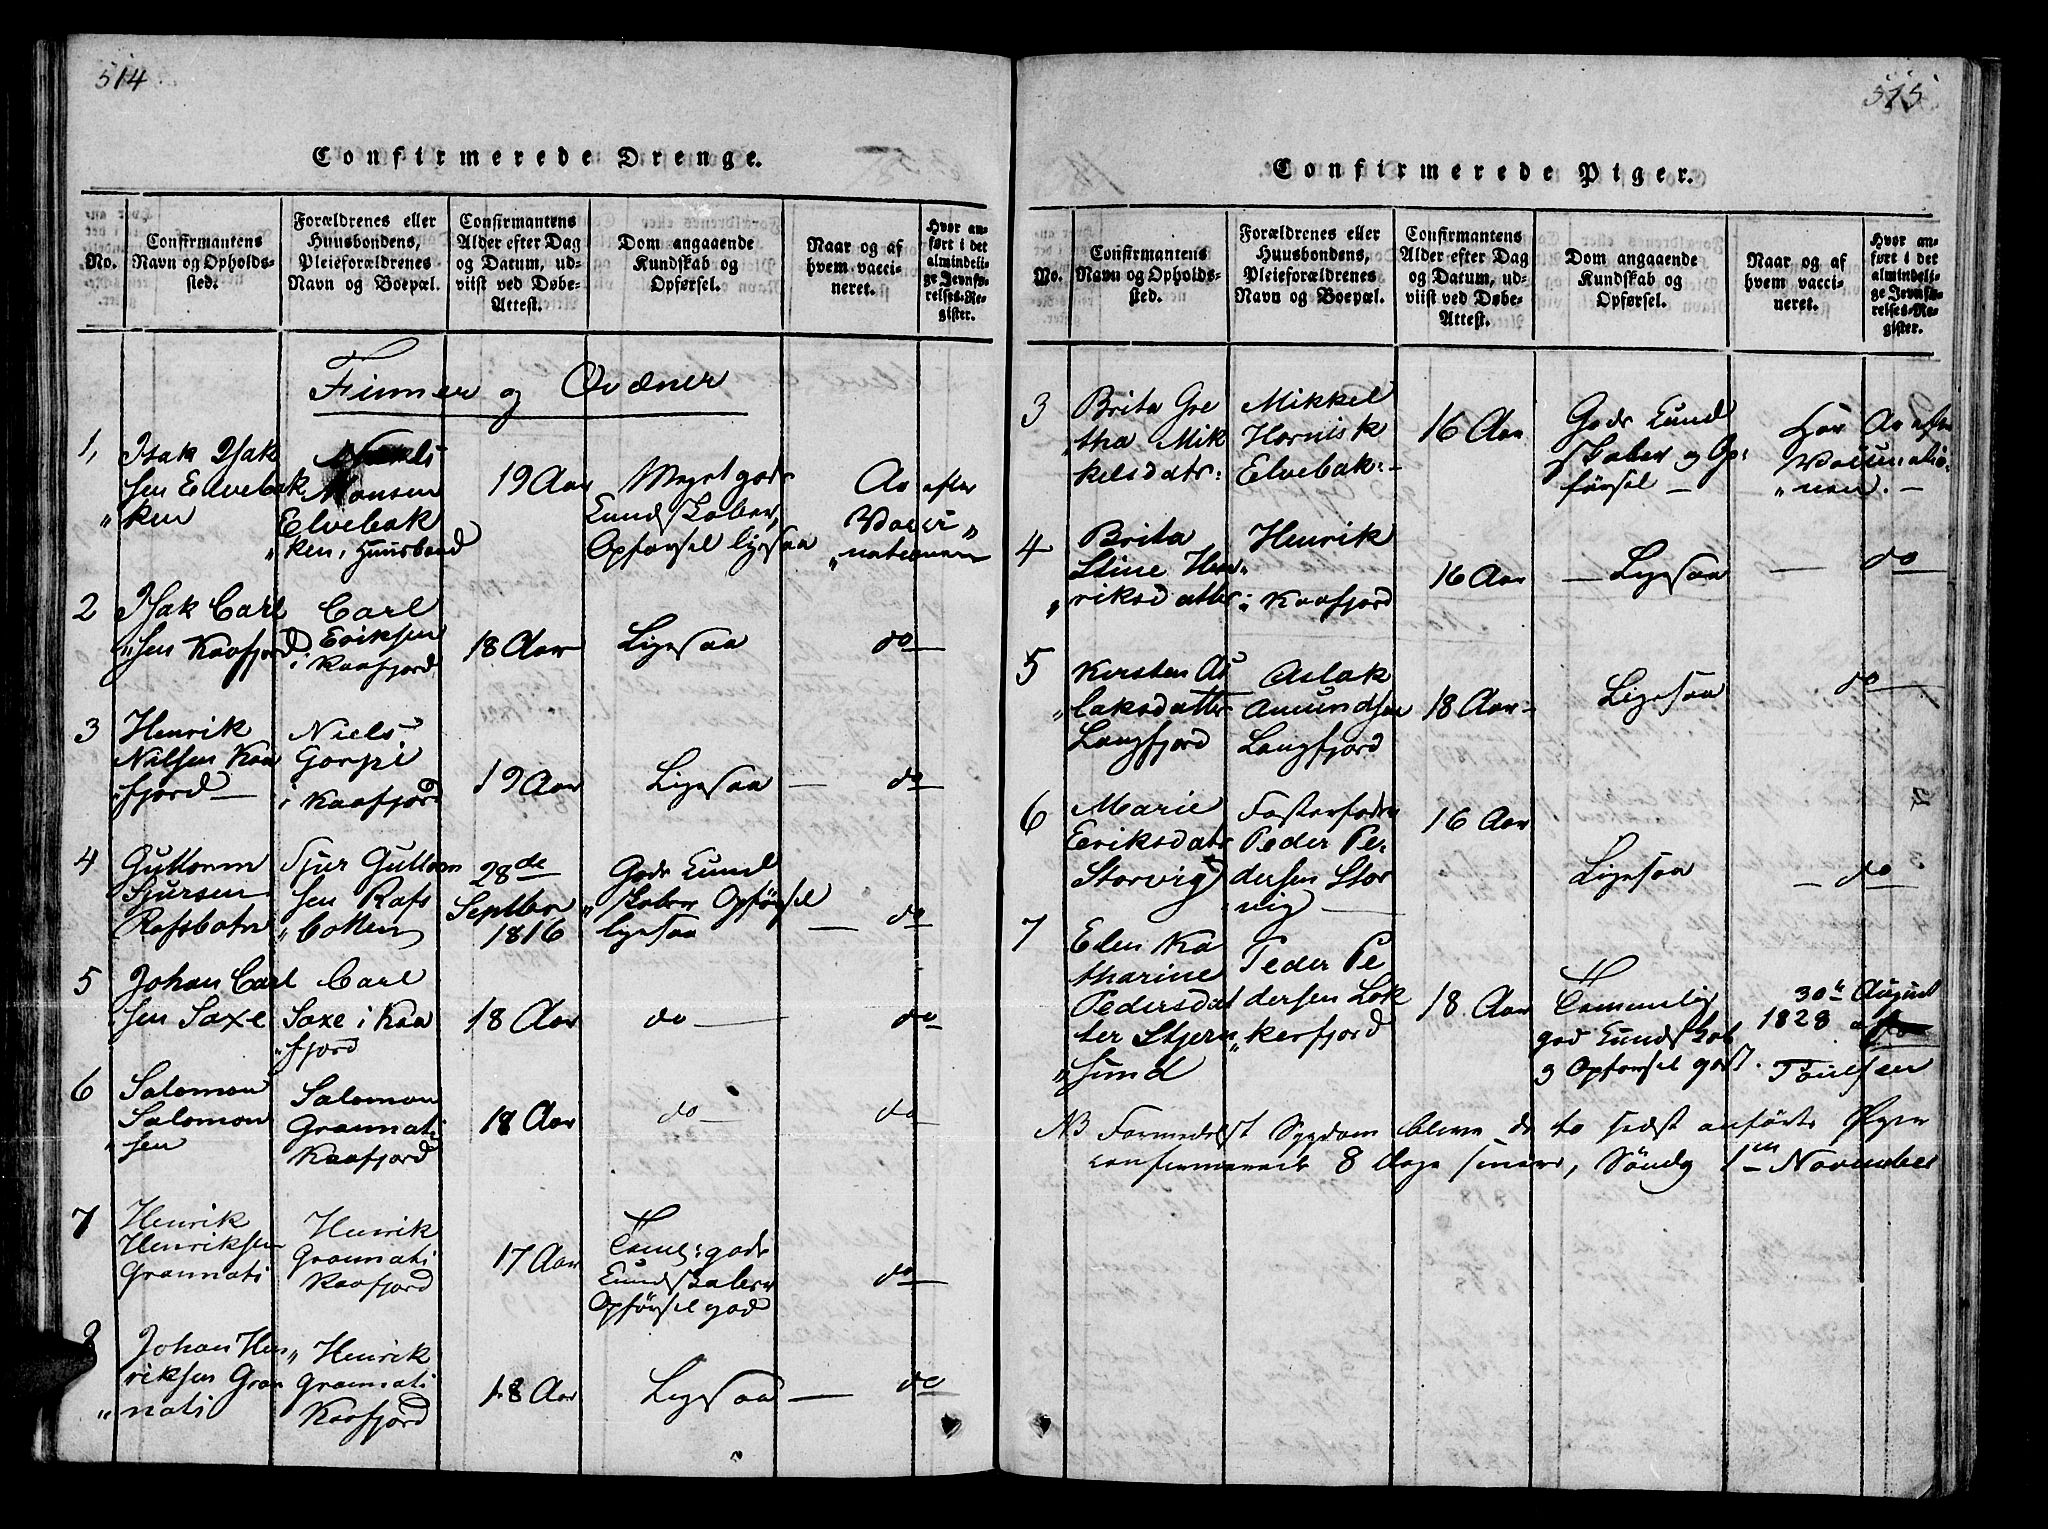 514
Confirmerede Drenge.
No.
Confirmantens
Navn og Opholds-
sted.
Forældrenes eller
Huusbondens,
Pleieforældrenes
Navn og Boepæl.
Confirmantens
Alder efter Dag
og Datum, ud-
viist ved Døbe-
Attest.
Dom angaaende
Kundskab og
Opførsel.
Naar og af
hvem vacci-
neret.
Hvor an-
ført i det
almindeli-
ge Jevnfø-
relses-Re-
gister.
Finner og Qvæner
1,
Isak Isak
sen Elvebak
"ken
Niels
Monsen
Elvebak
"ken, Huusbond
19 Aar
Meget gode
Kundskaber,
Opførsel ligesaa
Ar efter
Vacci"
"nationen
2
Isak Carl
"sen Kaafjord
Carl
Eriksen
i Kaafjord
18 Aar
Ligesaa
do
3
Henrik
Nilsen Kaa
"fjord
Niels
Gorpi
i Kaafjord
19 Aar
Ligesaa
do
4
Guttorm
Sjursen
Rafsbotn
Sjur Guttorm
sen Rafs
"botten
28de
Septber
1816
Gode Kund
"skaber Opførsel
ligesaa
do
5
Johan Carl
sen Saxe
Carl
Saxe i Kaa
"fjord
18 Aar
do
do
6
Salomon
Salomon
"sen
Salomon
Grannati
Kaafjord
18 Aar
do
do
7
Henrik
Henriksen
Grannati
Henrik
Grannati
Kaafjord
17 Aar
Teml: gode
Kundskaber
Opførsel god
do
8
Johan Hen"
riksen Gran
"nati
Henrik
Grannati
Kaafjord
18 Aar
Ligesaa
do
515
Confirmerede Piger.
No.
Confirmantens
Navn og Opholds-
sted.
Forældrenes eller
Huusbondens,
Pleieforældrenes
Navn og Boepæl.
Confirmantens
Alder efter Dag
og Datum, ud-
viist ved Døbe-
Attest.
Dom angaaende
Kundskab og
Opførsel.
Naar og af
hvem vacci-
neret.
Hvor an-
ført i det
almindeli-
ge Jevnfø-
relses-Re-
gister.
3
Brita Gre
"tha Mik
kelsdatr:
Mikkel
Hornisk
Elvebak:
16 Aar
Gode Kund
skaber og Op:
førsel
Har Ar efter
Vaccinatio
"nen.
4
Brita
Stine Hen"
"riksdatter
Henrik
i Kaafjord
16 Aar
Ligesaa
do
5
Kirsten As
"laksdatter
Langfjord
Aslak
Amundsen
Langfjord
18 Aar
Ligesaa
do
6
Marie
Eriksdatr
Storvig
Fosterfader
Peder Pe
dersen Stor
vig
16 Aar
Ligesaa
do
7
Elen Ka
tharine
Pedersdat
ter Stjern
"sund
Peder Pe
dersen Lok
"kerfjord
18 Aar
Temmelig
god Kundskab
g Opførsel god.
30te August
1828 af
Poulsen
NB Formedelst Sygdom bleve de to sidst anførte Piger
confirmerede 8 Dage senere, Søndg 1ste November